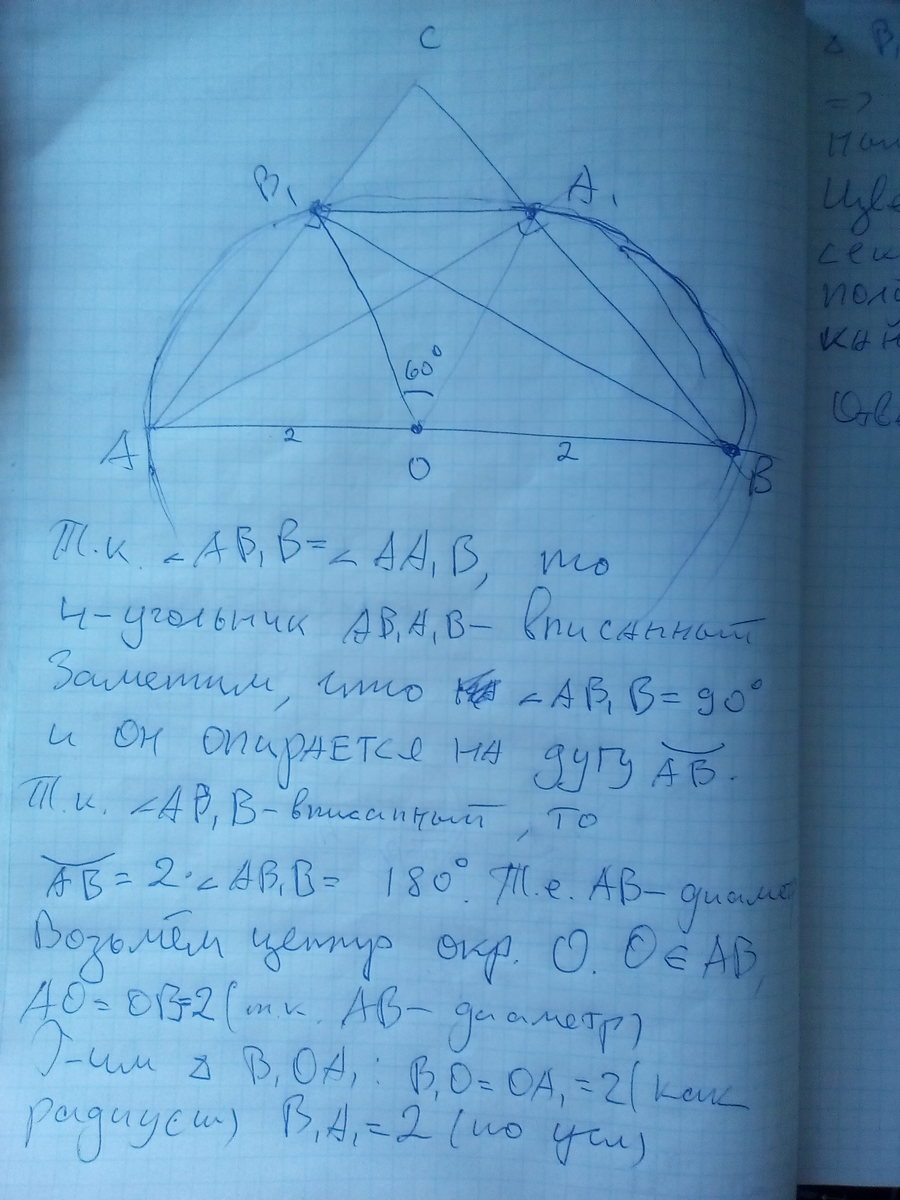 C
B₁
A₁
60°
2
2
A
O
B
Т.к. ∠AB₁B=∠AA₁B, то
4-угольник AB₁A₁B- вписанный
Заметим, что ∠AB₁B=90°
и он опирается на дугу ◡AB.
Т.к. ∠AB₁B-вписанный, то
◡AB=2·∠AB₁B= 180°. Т.е. AB- диамет
Возьмём центр окр. O. O∈AB,
AO=OB=2(т.к. AB- диаметр)
Р-им △ B₁OA₁: B₁O=OA₁=2(как
радиусы) B₁A₁=2 (по усл)
△ B₁
=>
сек
Отв